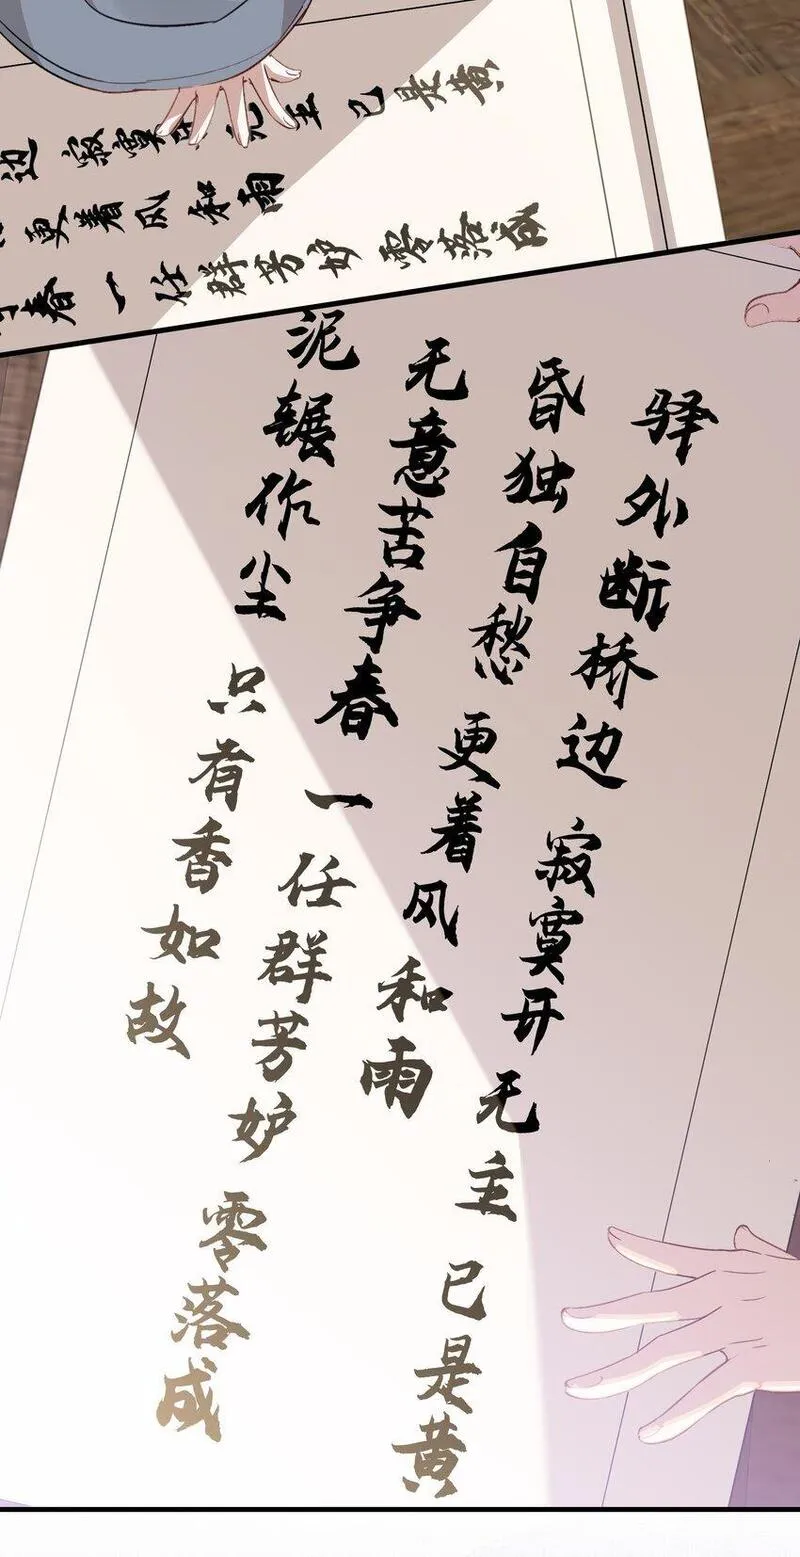 边 寂寞 无主 已是黄
更着风和雨
争春 一任群芳妒 零落成
驿外断桥边 寂寞开无主 已是黄
昏独自愁 更着风和雨
无意苦争春 一任群芳妒 零落成
泥辗作尘 只有香如故